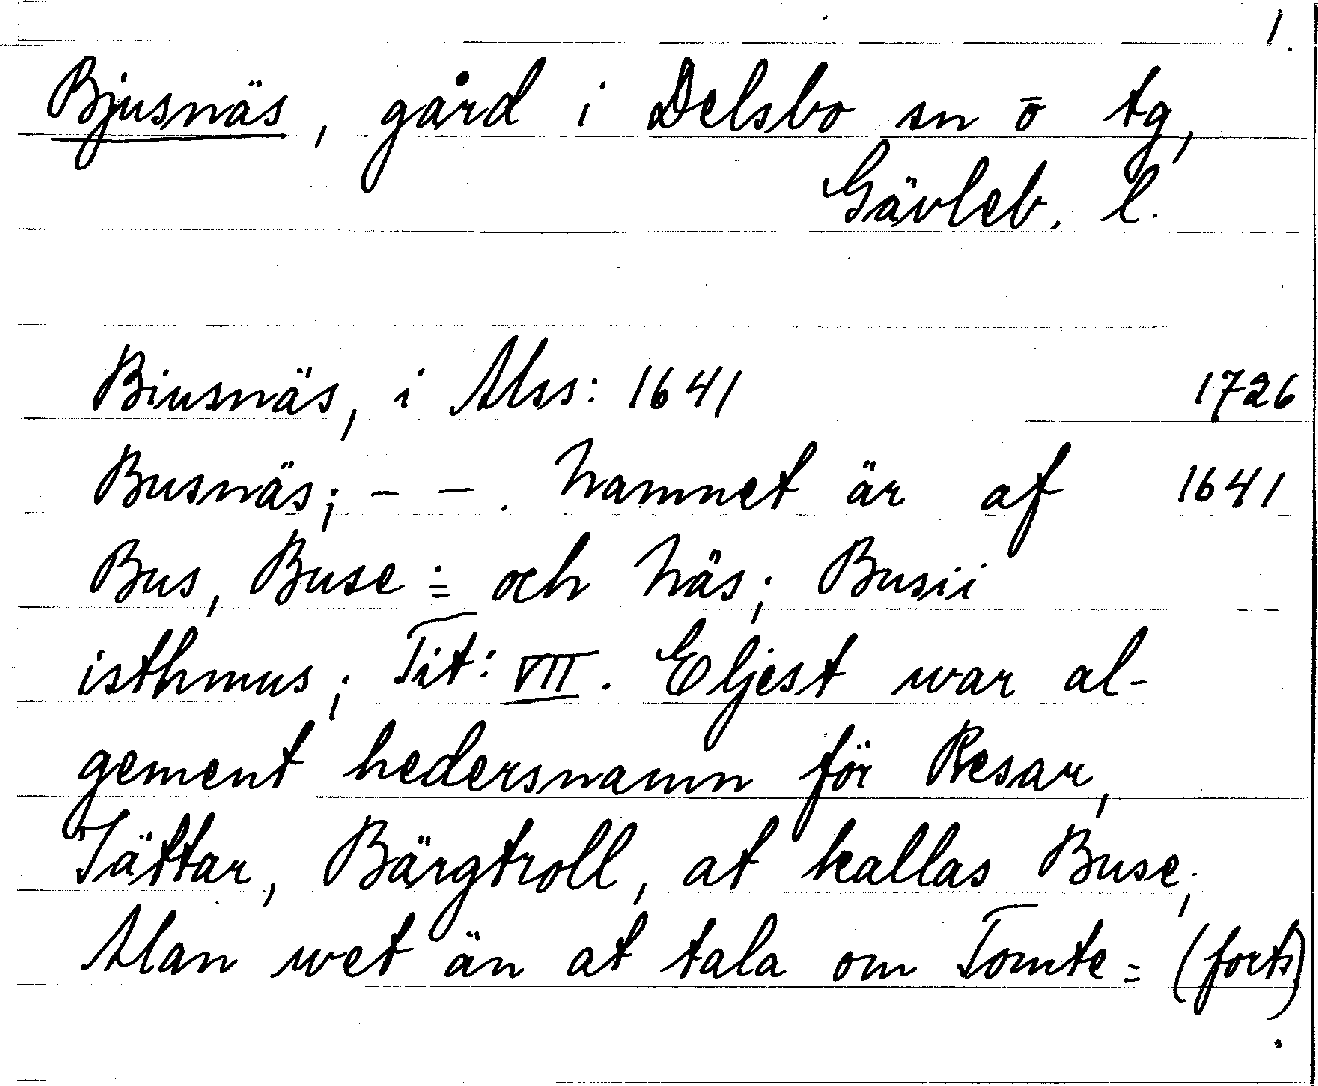 1.
Bjusnäs, gård i Delsbo sn o tg,
Gävleb. l.
Biusnäs, i Mss: 1641 1726
Busnäs; – – . Namnet är af 1641
Bus, Buse = och Näs; Busii
isthmus; Tit: VII. Eljest war al-
gement hedersnamn för Resar,
Jättar, Bärgtroll, at kallas Buse;
Man wet än at tala om Tomte= (forts)